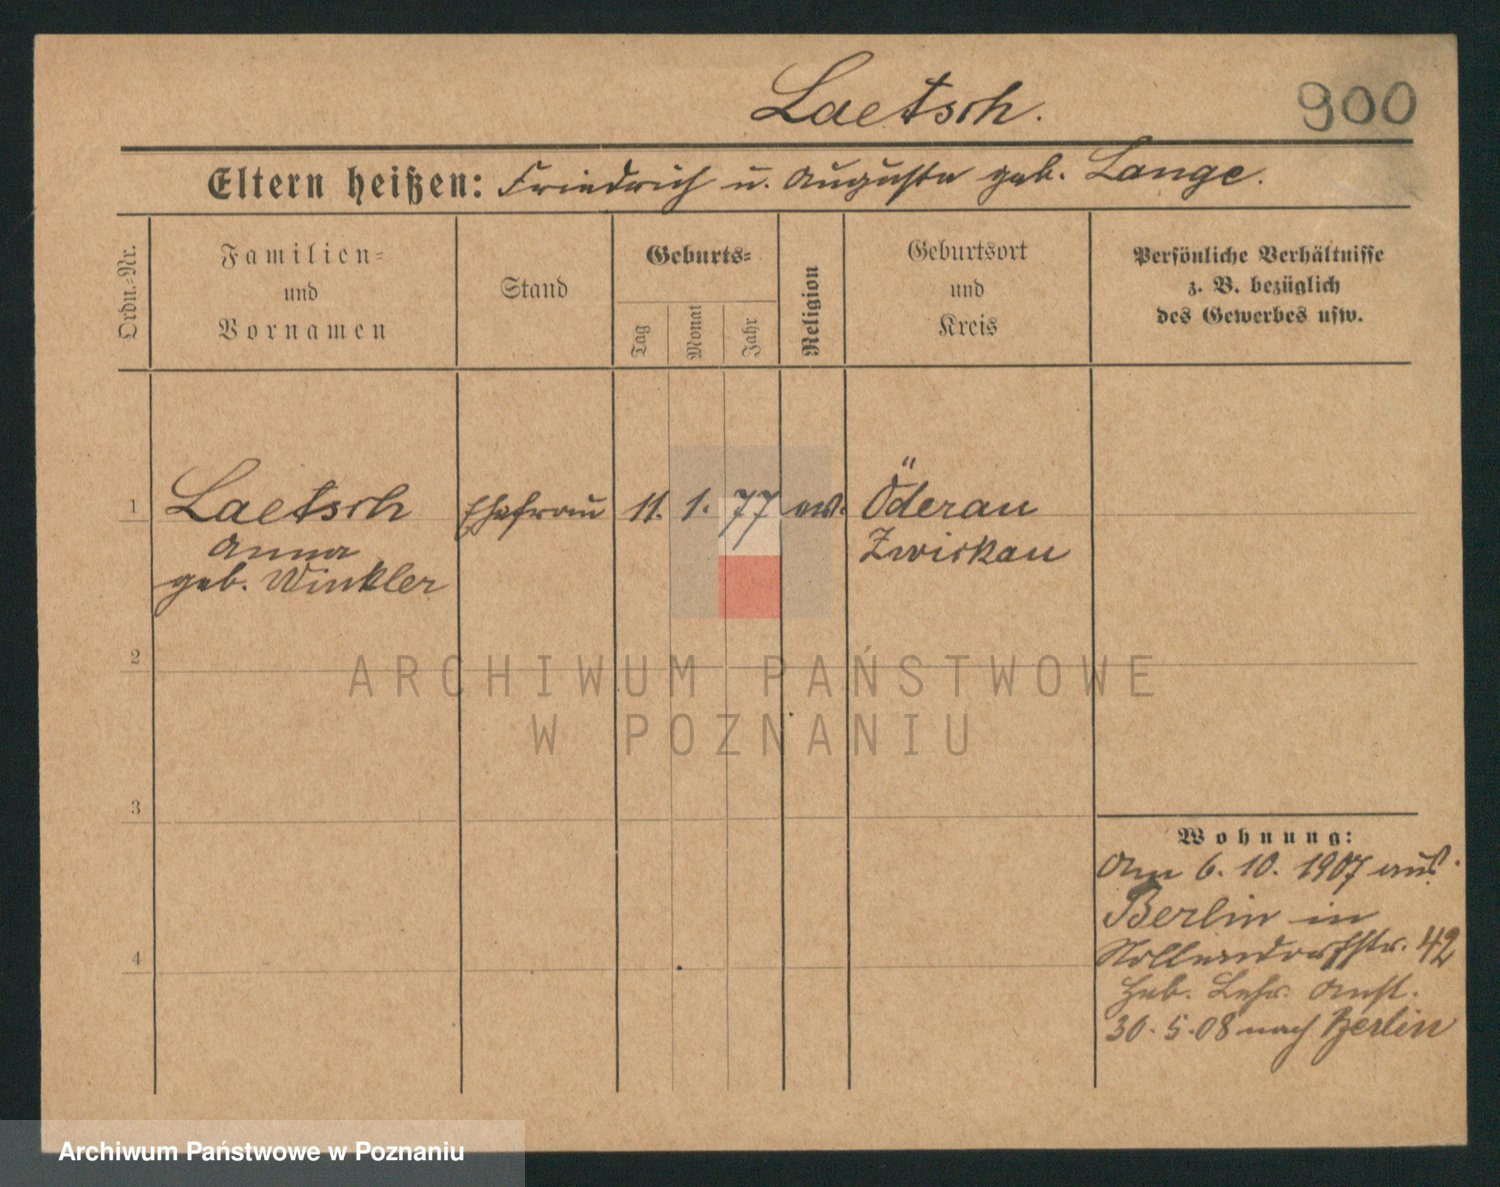 Laetsch.
900
Eltern heißen: Friedrich u. Auguste geb. Lange.
Ordn.-Nr.
Familien-
und
Vornamen
Stand
Geburts-
Tag
Monat
Jahr
Religion
Geburtsort
und
Kreis
Persönliche Verhältnisse
z. B. bezüglich
des Gewerbes usw.
1 Laetsch Ehefrau 11. 1. 77 ev. Öderau
Anna Zwickau
geb. Winkler
2
ARCHIWUM PAŃSTWOWE
W POZNANIU
3
Wohnung:
Am 6. 10. 1907 aus
Berlin in
Nollendorfstr. 42
Heb. Lehr. Anst.
30. 5. 08 nach Berlin
4
Archiwum Państwowe w Poznaniu